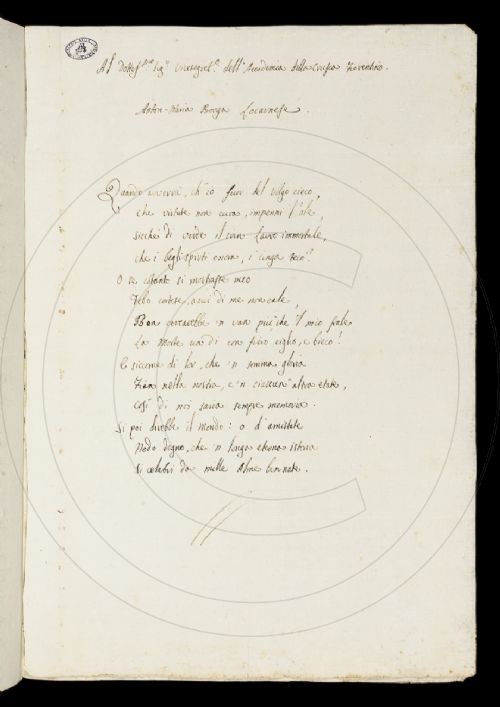 Al Dottiss.mo Sig.r Vicesegret.o dell'Accademia della Crusca Fiorentina.
Anton-Maria Borga Locarnese.
Quando avverrà, ch'io fuor del volgo cieco,
che virtute non cura, impenni l'ale,
sicchè di verde il crin Lauro immortale,
che i begli spirti onora, i' cinga teco!
O se cotanto si mostrasse meco
Febo cortese, a cui di me non cale,
Ben porterebbe 'n van più, che 'l mio frale
La Morte un dì con fiero ciglio, e bieco!
E siccome di lor, che 'n somma gloria
Fur nella nostra, e 'n ciascun' altra etate,
Così di noi saria sempre memoria.
Si poi direbbe il Mondo: o d'amistate
Nodo degno, che 'n lunga eterna istoria
Si celebri da mille Alme ben nate.